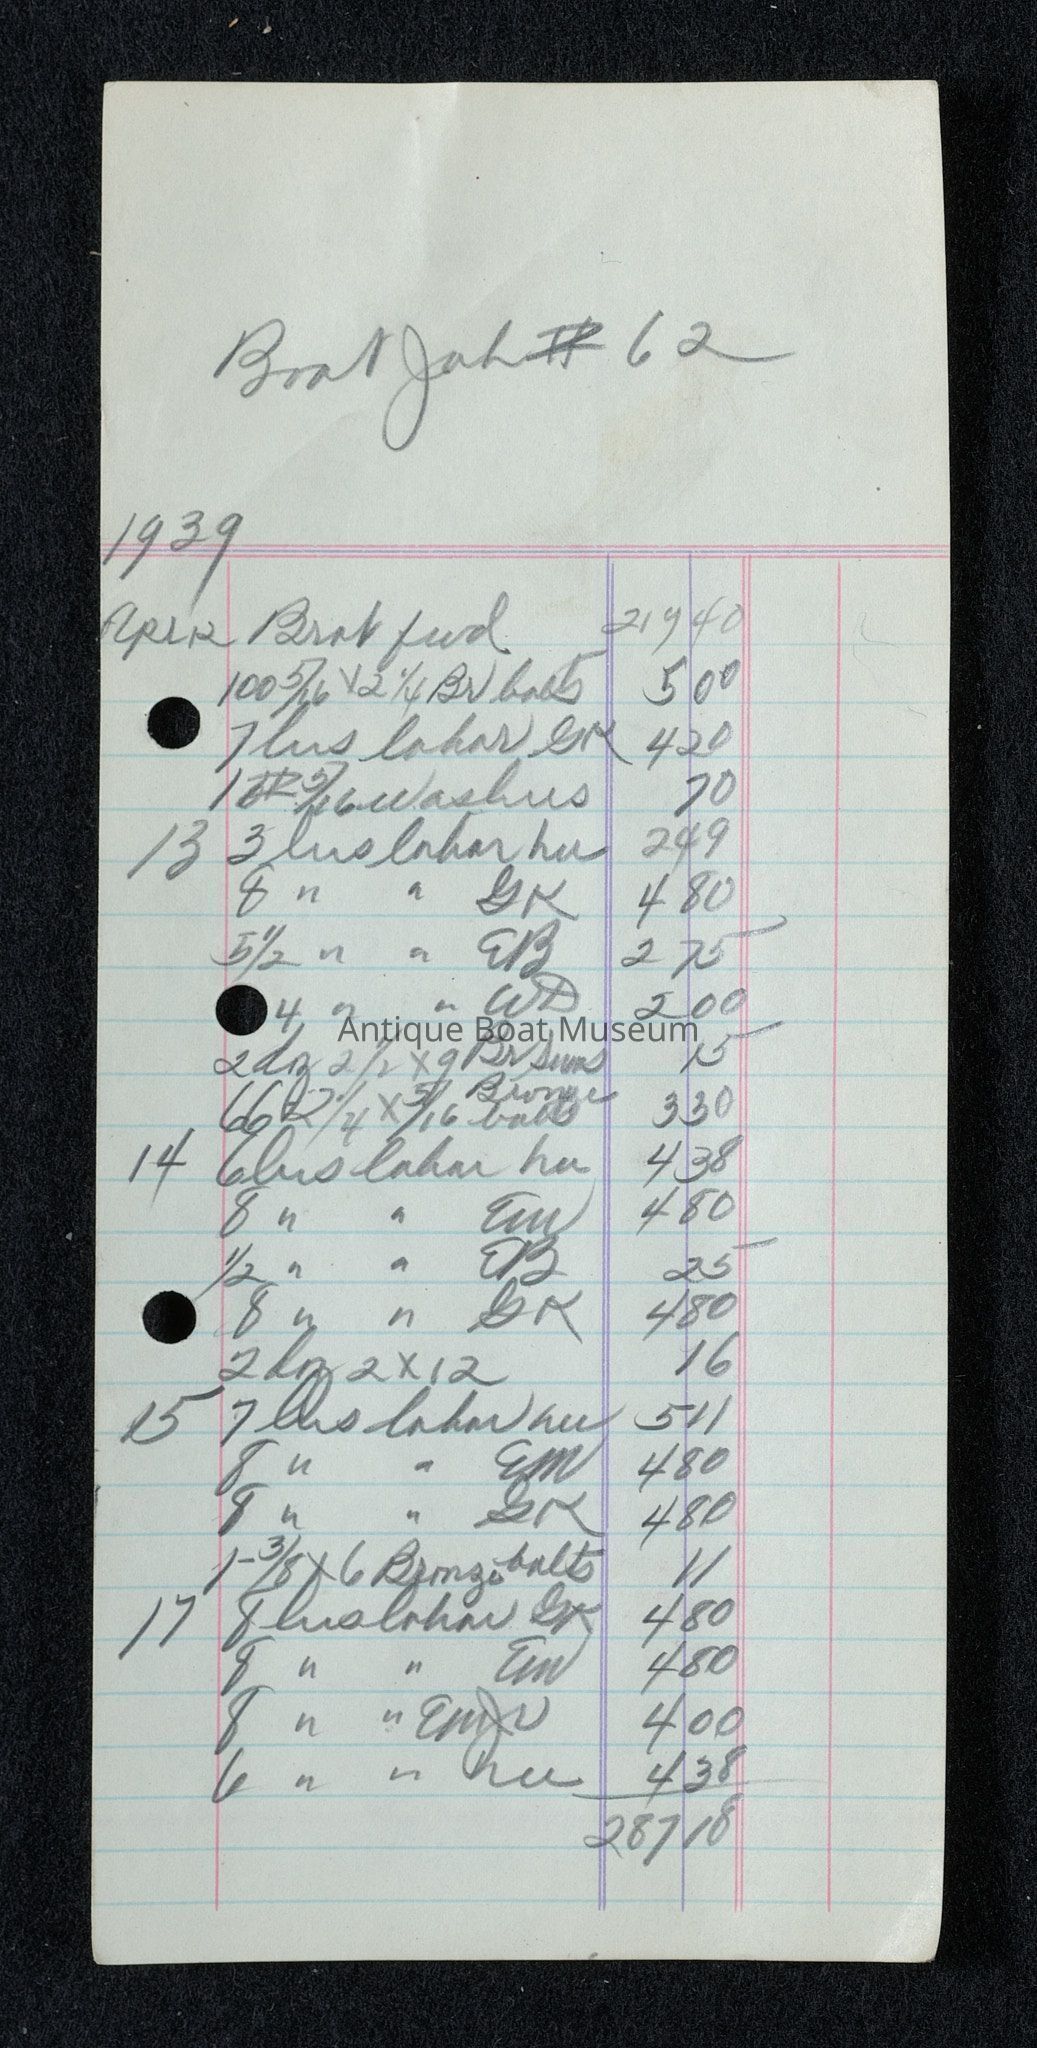 Boat Job # 62
1939
Apr 12 Brot fwd 219 40
100 5/16 x 2 1/4 Br bolts 5 00
7 hrs labor GK 4 20
1# 5/16 washers 70
13 3 hrs labor 2 49
8 " " GK 4 80
5 1/2 " " EB 2 75
4 " " WD 2 00
Antique Boat Museum
2 doz 2 1/2 x 9 Br 15
66 2 1/4 x 5/16 Bronze bolts 3 30
14 6 hrs labor 4 38
8 " " EM 4 80
1/2 " " EB 25
8 " " GK 4 80
2 doz 2 x 12 16
15 7 hrs labor 5 11
8 " " EM 4 80
8 " " GK 4 80
1-3/8 x 6 Bronze bolts 11
17 8 hrs labor GK 4 80
8 " " EM 4 80
8 " " EM Jr 4 00
6 " " 4 38
287 18